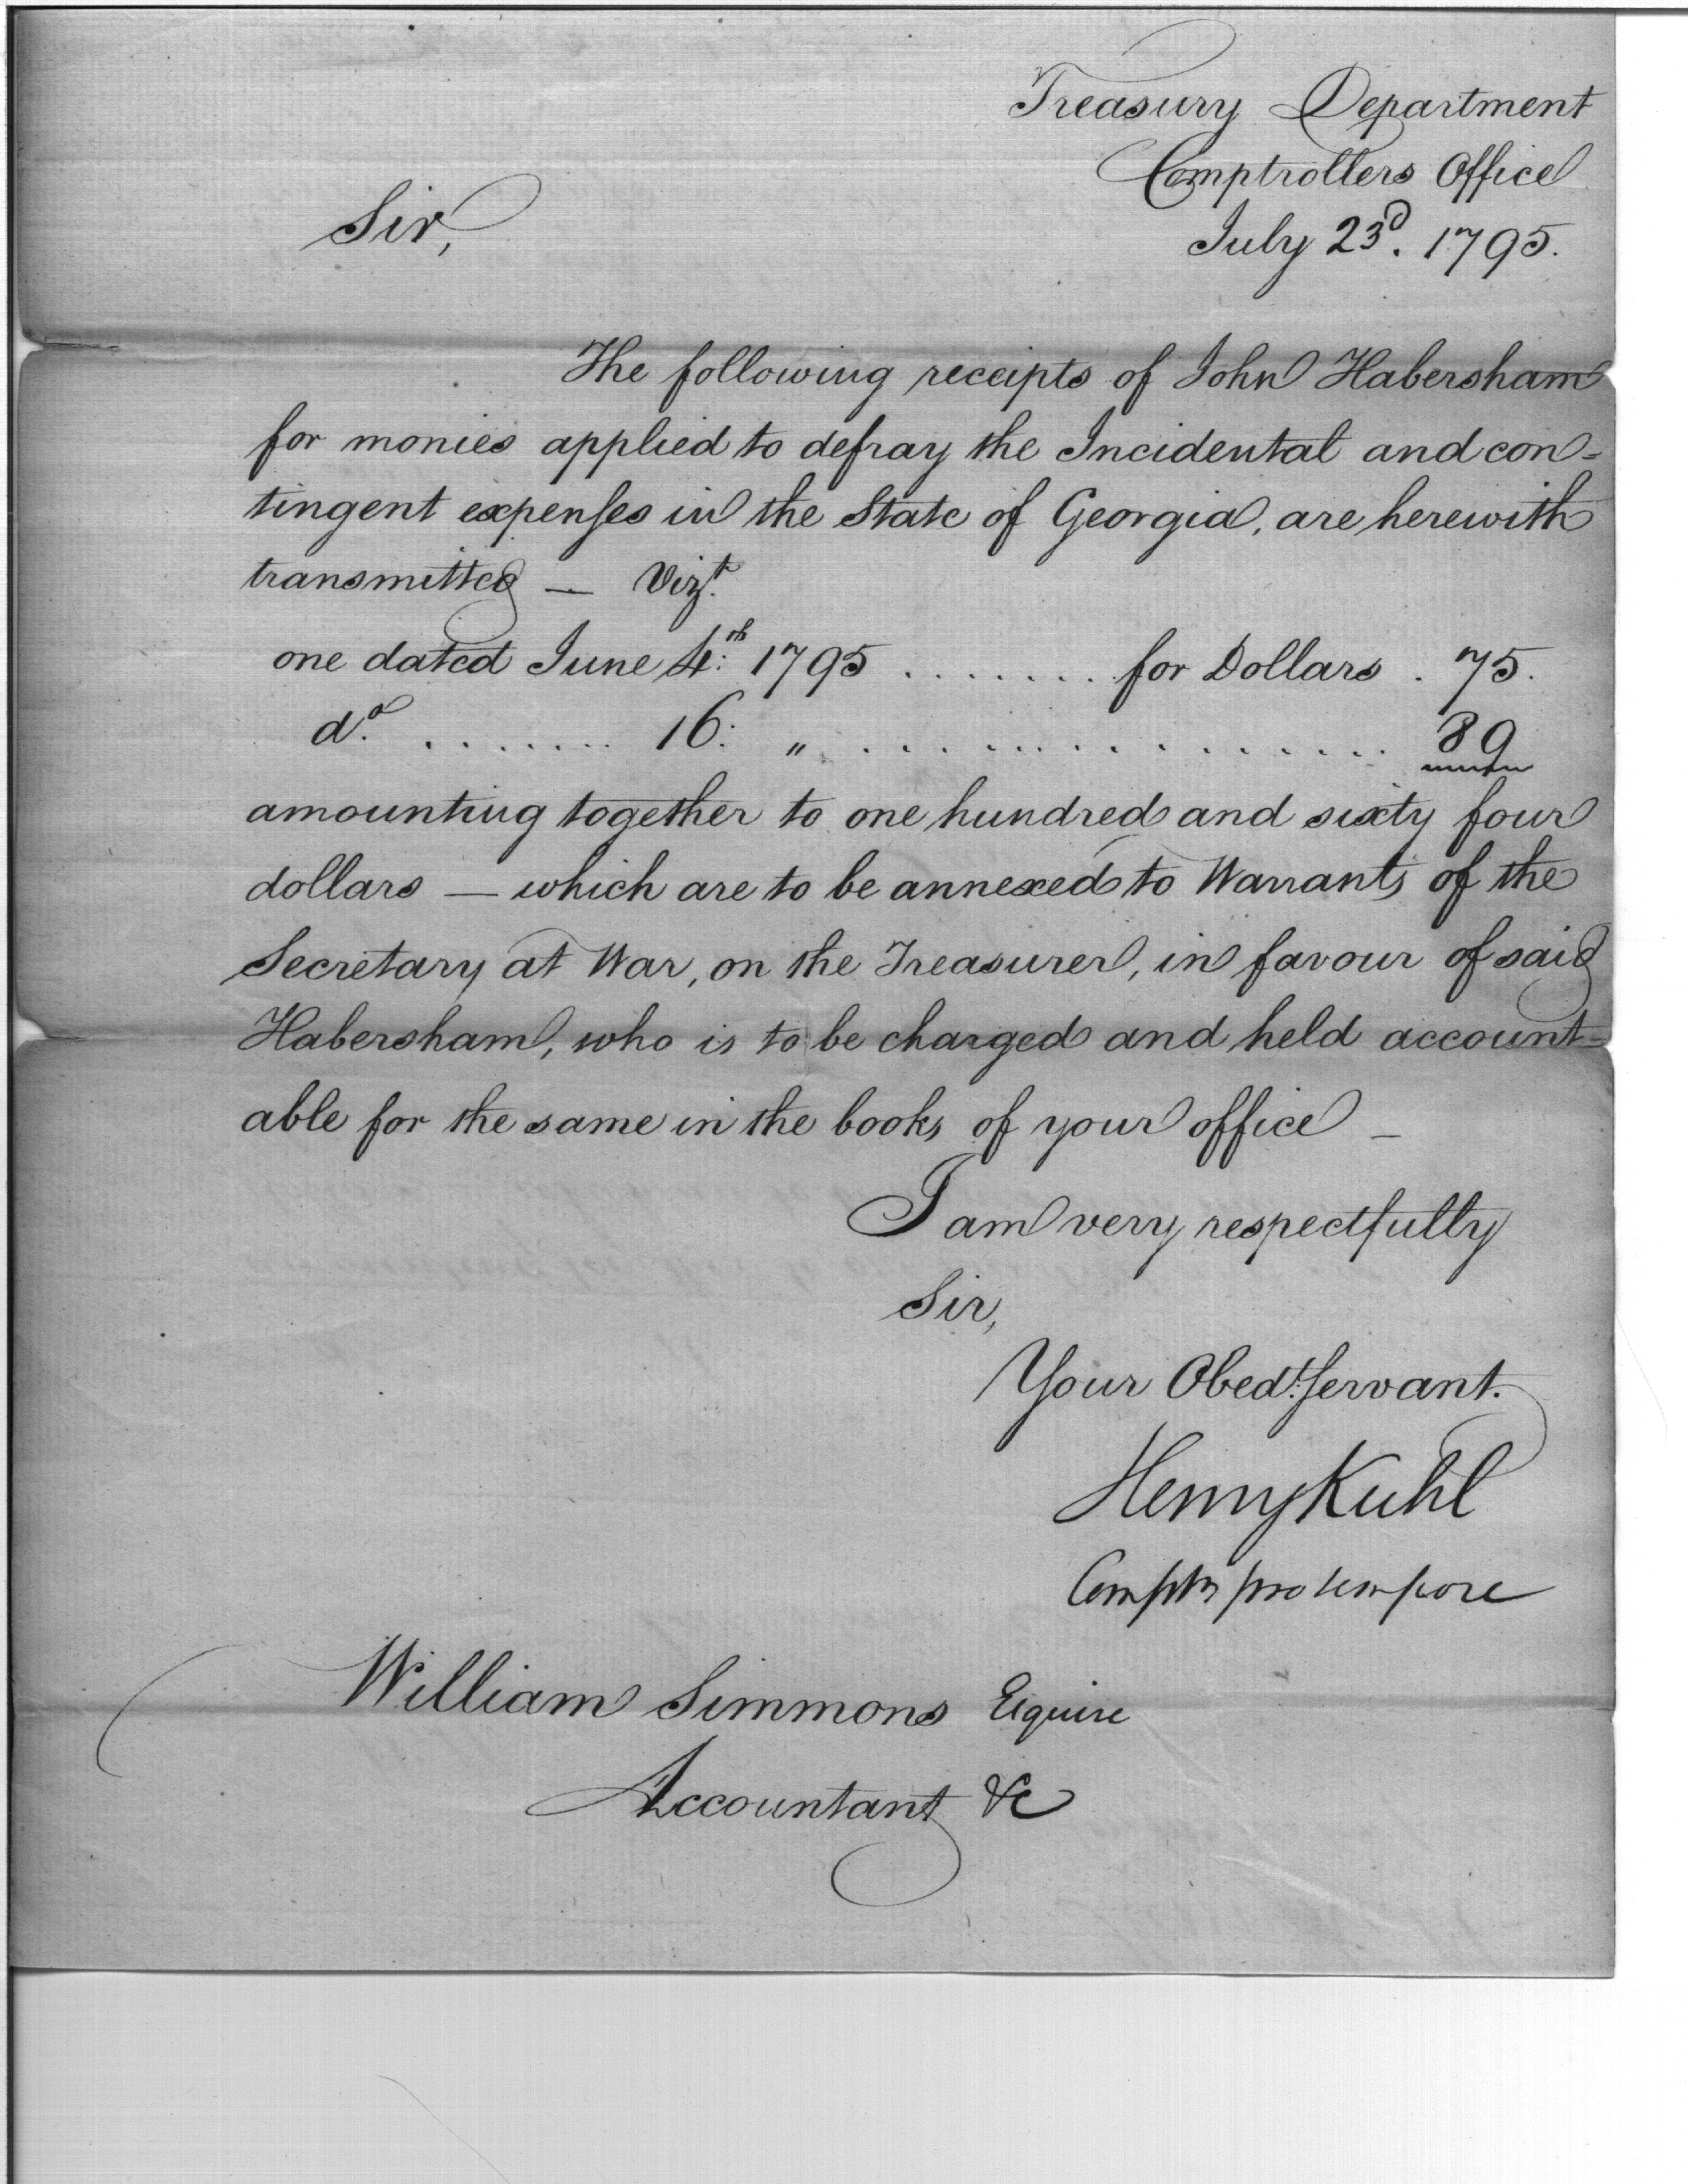 Treasury Department
Comptrollers Office
July 23d. 1795.
Sir,
The following receipts of John Habersham
for monies applied to defray the Incidental and con-
tingent expenses in the State of Georgia, are herewith
transmitted — Vizt.
one dated June 4th: 1795 . . . . . . . for Dollars . 75.
do. . . . . . . . . 16: " . . . . . . . . . . . . . . . . 89
amounting together to one hundred and sixty four
dollars — which are to be annexed to Warrants of the
Secretary at War, on the Treasurer, in favour of said
Habersham, who is to be charged and held account=
able for the same in the books of your office —
I am very respectfully
Sir,
Your Obedt. Servant.
Henry Kuhl
Comptr pro tempore
William Simmons Esquire
Accountant &c